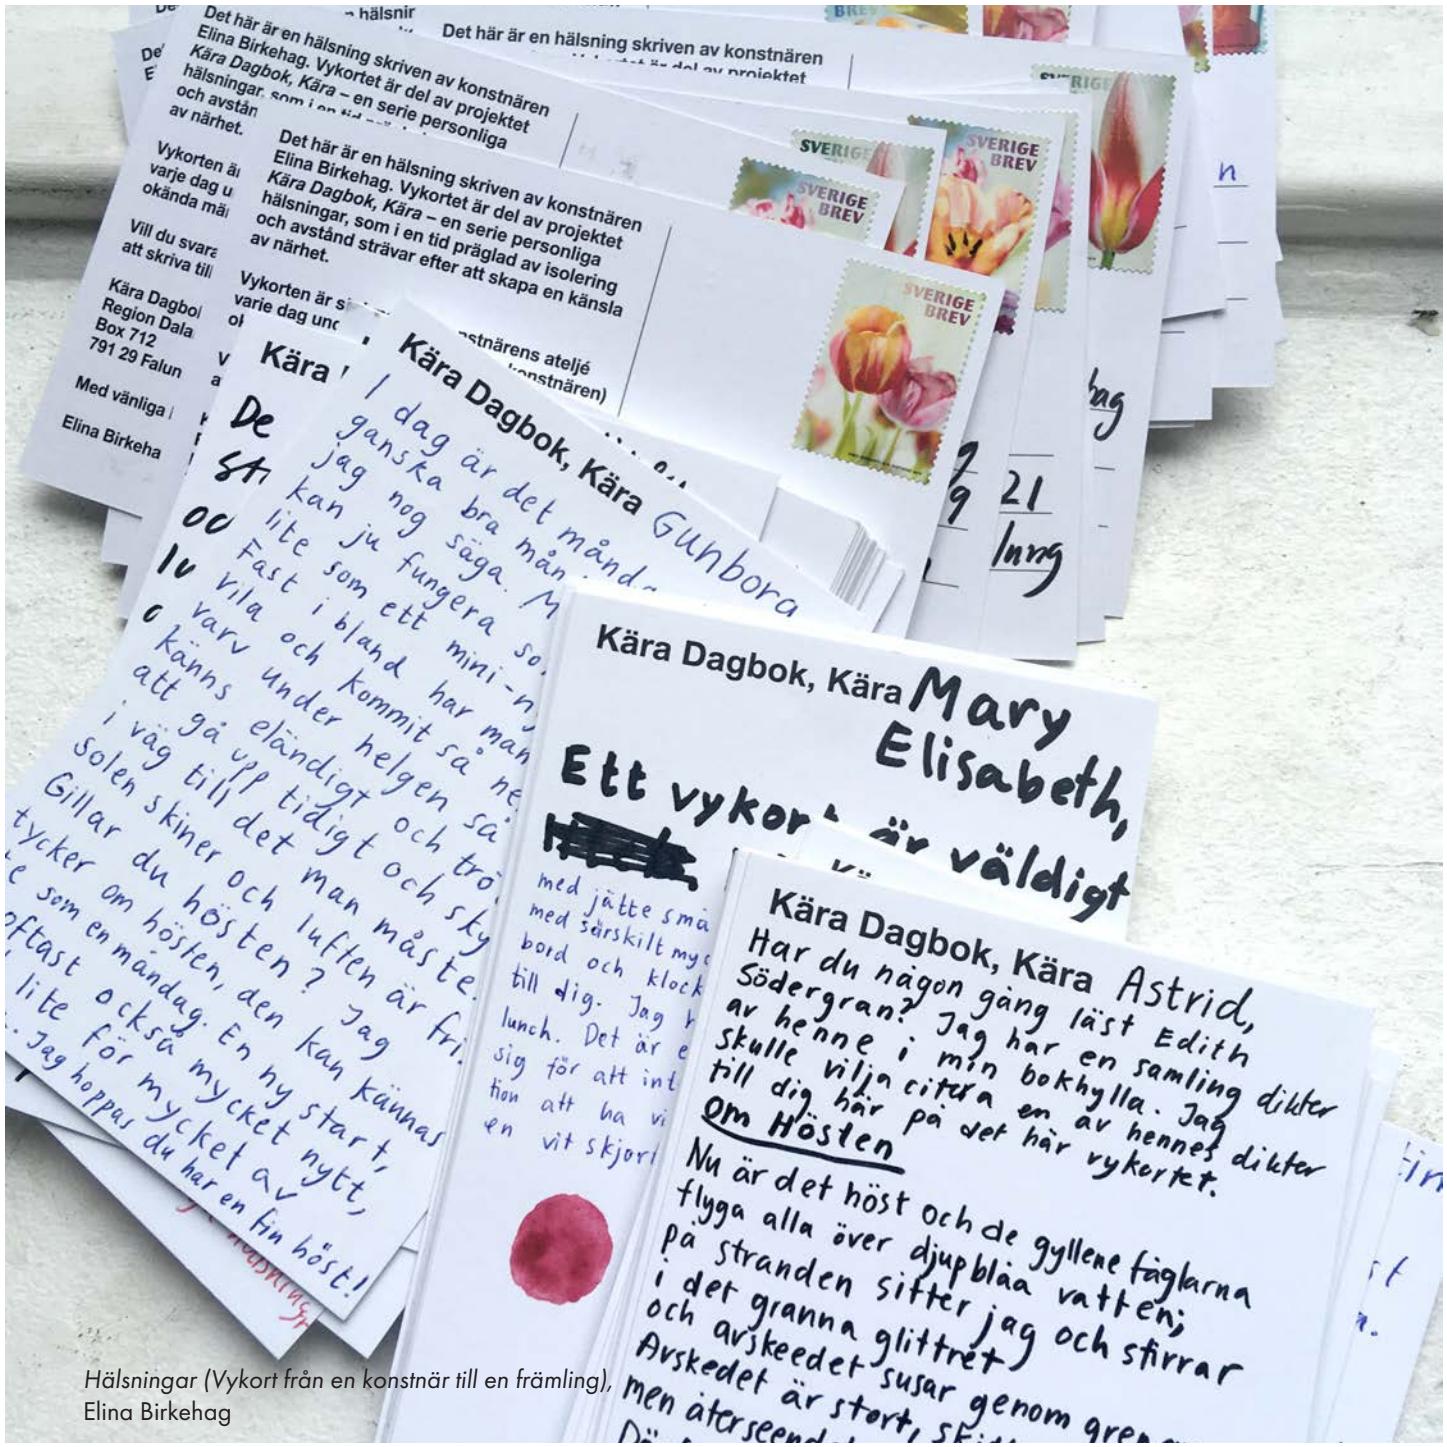 hälsnir
Det här är en hälsning skriven av konstnären
Det här är en hälsning skriven av konstnären
Elina Birkehag. Vykortet är del av projektet
Kära Dagbok, Kära – en serie personliga
hälsningar, som i en tid
och avstån
av närhet.
Vykorten är
varje dag u
okända mä
Vill du svara
att skriva till
Kära Dagbo
Region Dala
Box 712
791 29 Falun
Med vänliga
Elina Birkeha
Det här är en hälsning skriven av konstnären
Elina Birkehag. Vykortet är del av projektet
Kära Dagbok, Kära – en serie personliga
hälsningar, som i en tid präglad av isolering
och avstånd strävar efter att skapa en känsla
av närhet.
Vykorten är s
varje dag und
nstnärens ateljé
konstnären)
BREV
SVERIGE
SVERIGE
BREV
SVERIGE
BREV
SVERIGE
BREV
n
hag
21
Kära
De
Kära Dagbok, Kära Gunbora
I dag är det månda
ganska bra mån
jag nog säga. M
kan ju fungera so
lite som ett mini-n
Fast i bland har man
vila och kommit så ne
varv under helgen så
känns eländigt och trö
att gå upp tidigt och sky
i väg till det man måste.
Solen skiner och luften är fri
Gillar du hösten? Jag
tycker om hösten, den kan kännas
e som en måndag. En ny start,
oftast också mycket nytt,
lite för mycket av
Jag hoppas du har en fin höst!
Kära Dagbok, Kära Mary
Elisabeth,
Ett vykort är väldigt
med jätte små
med särskilt myc
bord och klock
till dig. Jag h
lunch. Det är e
sig för att int
tion att ha vi
en vit skjor
Kära Dagbok, Kära Astrid,
Har du någon gång läst Edith
Södergran? Jag har en samling dikter
av henne i min bokhylla. Jag
skulle vilja citera en av hennes dikter
till dig här på det här vykortet.
Om Hösten
Nu är det höst och de gyllene fåglarna
flyga alla över djupblåa vatten;
på stranden sitter jag och stirrar
i det granna glittret
och avskeedet susar genom gren
Avskedet är stort, ski
men återseend
Hälsningar (Vykort från en konstnär till en främling),
Elina Birkehag